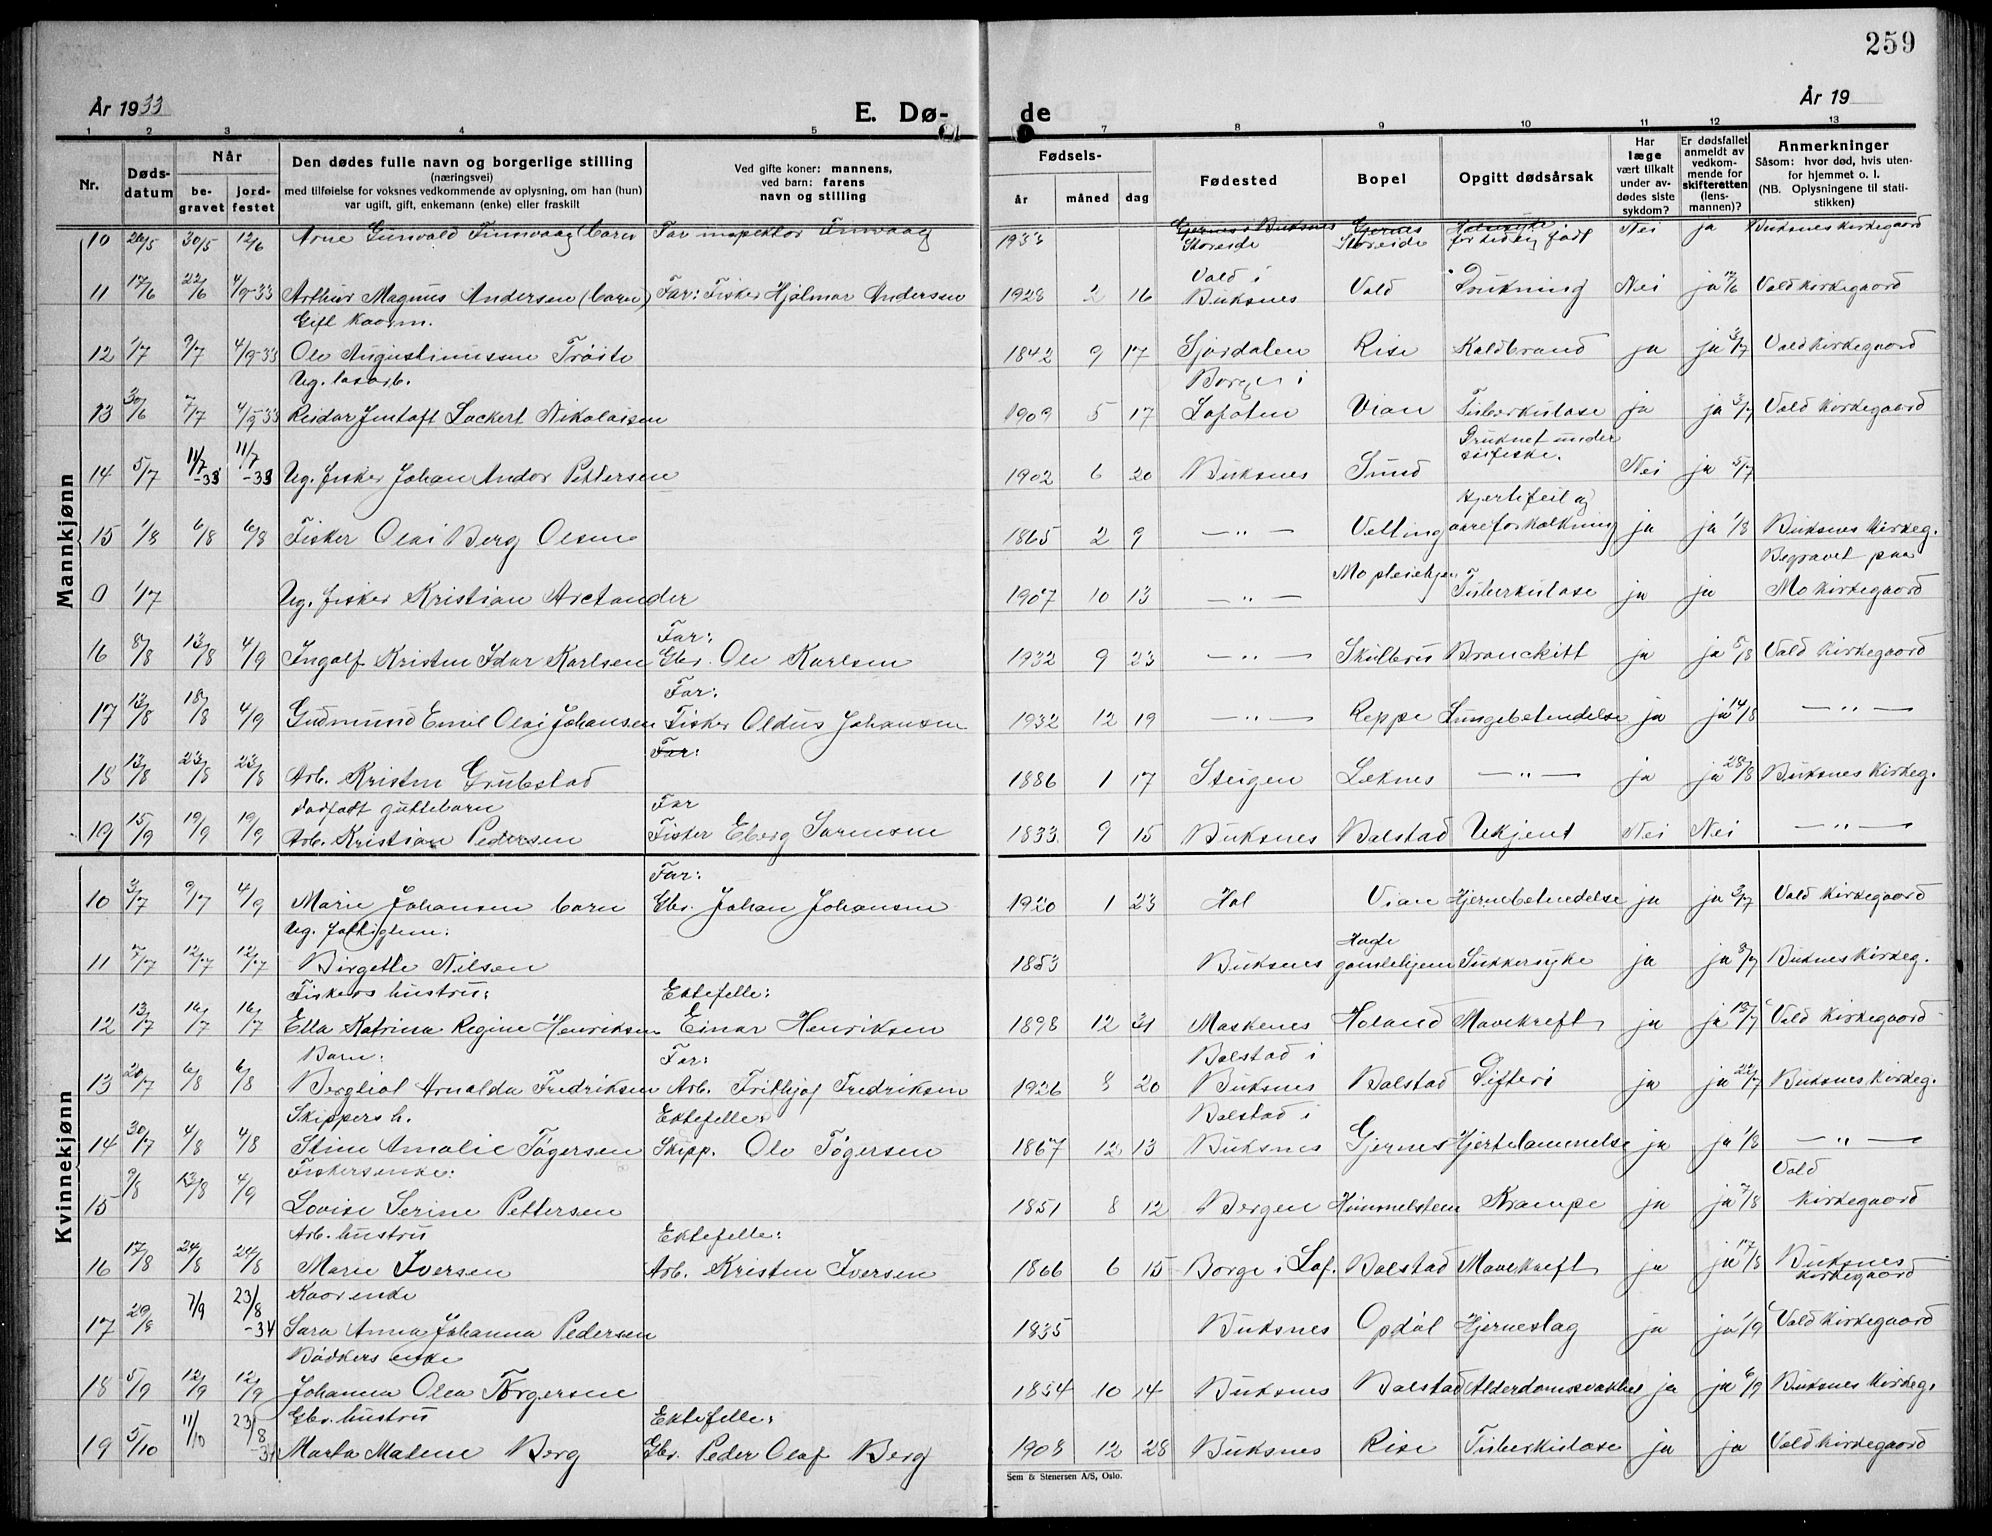 259
År 1933 E. Dø- de År 19
1 2 3 4 5 7 8 9 10 11 12 13
Nr. Døds-datum Når be-gravet jord-festet Den dødes fulle navn og borgerlige stilling (næringsvei) med tilføielse for voksnes vedkommende av oplysning, om han (hun) var ugift, gift, enkemann (enke) eller fraskilt Ved gifte koner: mannens, ved barn: farens navn og stilling Fødsels- år måned dag Fødested Bopel Opgitt dødsårsak Har læge vært tilkalt under av-dødes siste sykdom? Er dødsfallet anmeldt av vedkom-mende for skifteretten (lens-mannen)? Anmerkninger Såsom: hvor død, hvis uten-for hjemmet o. l. (NB. Oplysningene til stati-stikken)
Mannkjønn
10 26/5 30/5 12/6 Arne Gunvald Finnvaag barn Far inspektør Finvaag 1933 Gjernes i Buksnes Storeide Gjernes Storeide for tidlig født Nei ja Buksnes Kirkegaard
11 17/6 22/6 4/9-33 Arthur Magnus Andersen (barn) Far: Fisker Hjalmar Andersen 1928 2 16 Vold i Buksnes Vold Drukning Nei ja 17/6 Vold Kirkegaard
Gift kaarm.
12 1/7 9/7 4/9-33 Ole Augustinussen Tröite 1842 9 17 Sjørdalen Rise Koldbrand ja ja 3/7 Vold Kirkegaard
Ug. løsarb.
13 30/6 7/7 4/9-33 Reidar Jentoft Lockert Nikolaisen 1909 5 17 Borge i Lofoten Vian Tuberkulose ja ja 3/7 Vold Kirkegaard
14 5/7 11/7-33 11/7-33 Ug. fisker Johan Andor Pettersen 1902 6 20 Buksnes Sund Druknet under seifiske. Nei ja 5/7
15 1/8 6/8 6/8 Fisker Olai Berg Olsen 1865 2 9 —"— Velting Hjertefeil og aareforkalkning ja ja 1/8 Buksnes Kirkeg.
0 1/7 Ug. fisker Kristian Arctander 1907 10 13 —"— Mo pleiehjem Tuberkulose ja ja Begravet paa Mo Kirkegaard
16 8/8 13/8 4/9 Ingolf Kristen Idar Karlsen Far: Gbr. Ole Karlsen 1932 9 23 —"— Skulbru Bronckitt ja ja 5/8 Vold Kirkegaard
17 13/8 18/8 4/9 Gudmund Emil Olai Johansen Far: Fisker Oldus Johansen 1932 12 19 —"— Reppe Lungebetendelse ja ja 14/8 —"—
18 13/8 23/8 23/8 Arb. Kristen Grubstad Far: 1886 1 17 Steigen Leknes —"— ja ja 28/8 Buksnes Kirkeg.
Dødfødt guttebarn
19 15/9 19/9 19/9 Arb. Kristian Pedersen Far Fisker Eberg Sørensen 1833 9 15 Buksnes Balstad Ukjent Nei Nei —"—
Kvinnekjønn
10 3/7 9/7 4/9 Marie Johansen barn Far: Gbr. Johan Johansen 1920 1 23 Hol Vian Hjernebetendelse ja ja 3/7 Vold Kirkegaard
Ug. fattiglem:
11 7/7 12/7 12/7 Birgette Nilsen 1853 Buksnes Hagle gamlehjem Sukkersyke ja ja 8/7 Buknes Kirkeg.
Fiskers hustru:
12 13/7 16/7 16/7 Ella Katrina Regine Henriksen Ektefelle: Einar Henriksen 1898 12 31 Moskenes Holand Mavekreft ja ja 13/7 Vold Kirkegaard
Barn:
13 20/7 6/8 6/8 Bergliot Arnalda Fredriksen Far: Arb. Frithjof Fredriksen 1926 8 20 Balstad i Buksnes Balstad Difteri ja ja 22/7 Buksnes Kirkeg.
Skippers h.
14 30/7 4/8 4/8 Stine Amalie Tøgersen Ektefelle: Skipp. Ole Tøgersen 1867 12 13 Balstad i Buksnes Gjernes Hjertelammelse ja ja 1/8 —"—
Fiskersenke:
15 9/8 13/8 4/9 Lovise Serine Pettersen 1851 8 12 Bergen Himmelsten Krampe ja ja 7/8 Vold Kirkegaard
Arb. hustru
16 17/8 24/8 24/8 Marie Iversen Ektefelle: Arb. Kristen Iversen 1866 6 15 Borge i Lof. Balstad Mavekreft ja ja 17/8 Buksnes Kirkegaard
Kaarenke
17 29/8 7/9 23/8-34 Sara Anna Johanna Pedersen 1835 Buksnes Opdøl Hjerneslag ja ja 1/9 Vold Kirkegaard
Bödkers enke
18 5/9 12/9 12/9 Johanna Olea Torgersen 1854 10 14 Buksnes Balstad Alderdomssvakhet ja ja 6/9 Buksnes Kirkeg.
Gbr. hustru
19 5/10 11/10 23/8-34 Marta Malene Berg Ektefelle: Gbr. Peder Olaf Berg 1908 12 28 Buksnes Rise Tuberkulose ja ja Vold Kirkegaard
Sem & Stenersen A/S, Oslo.